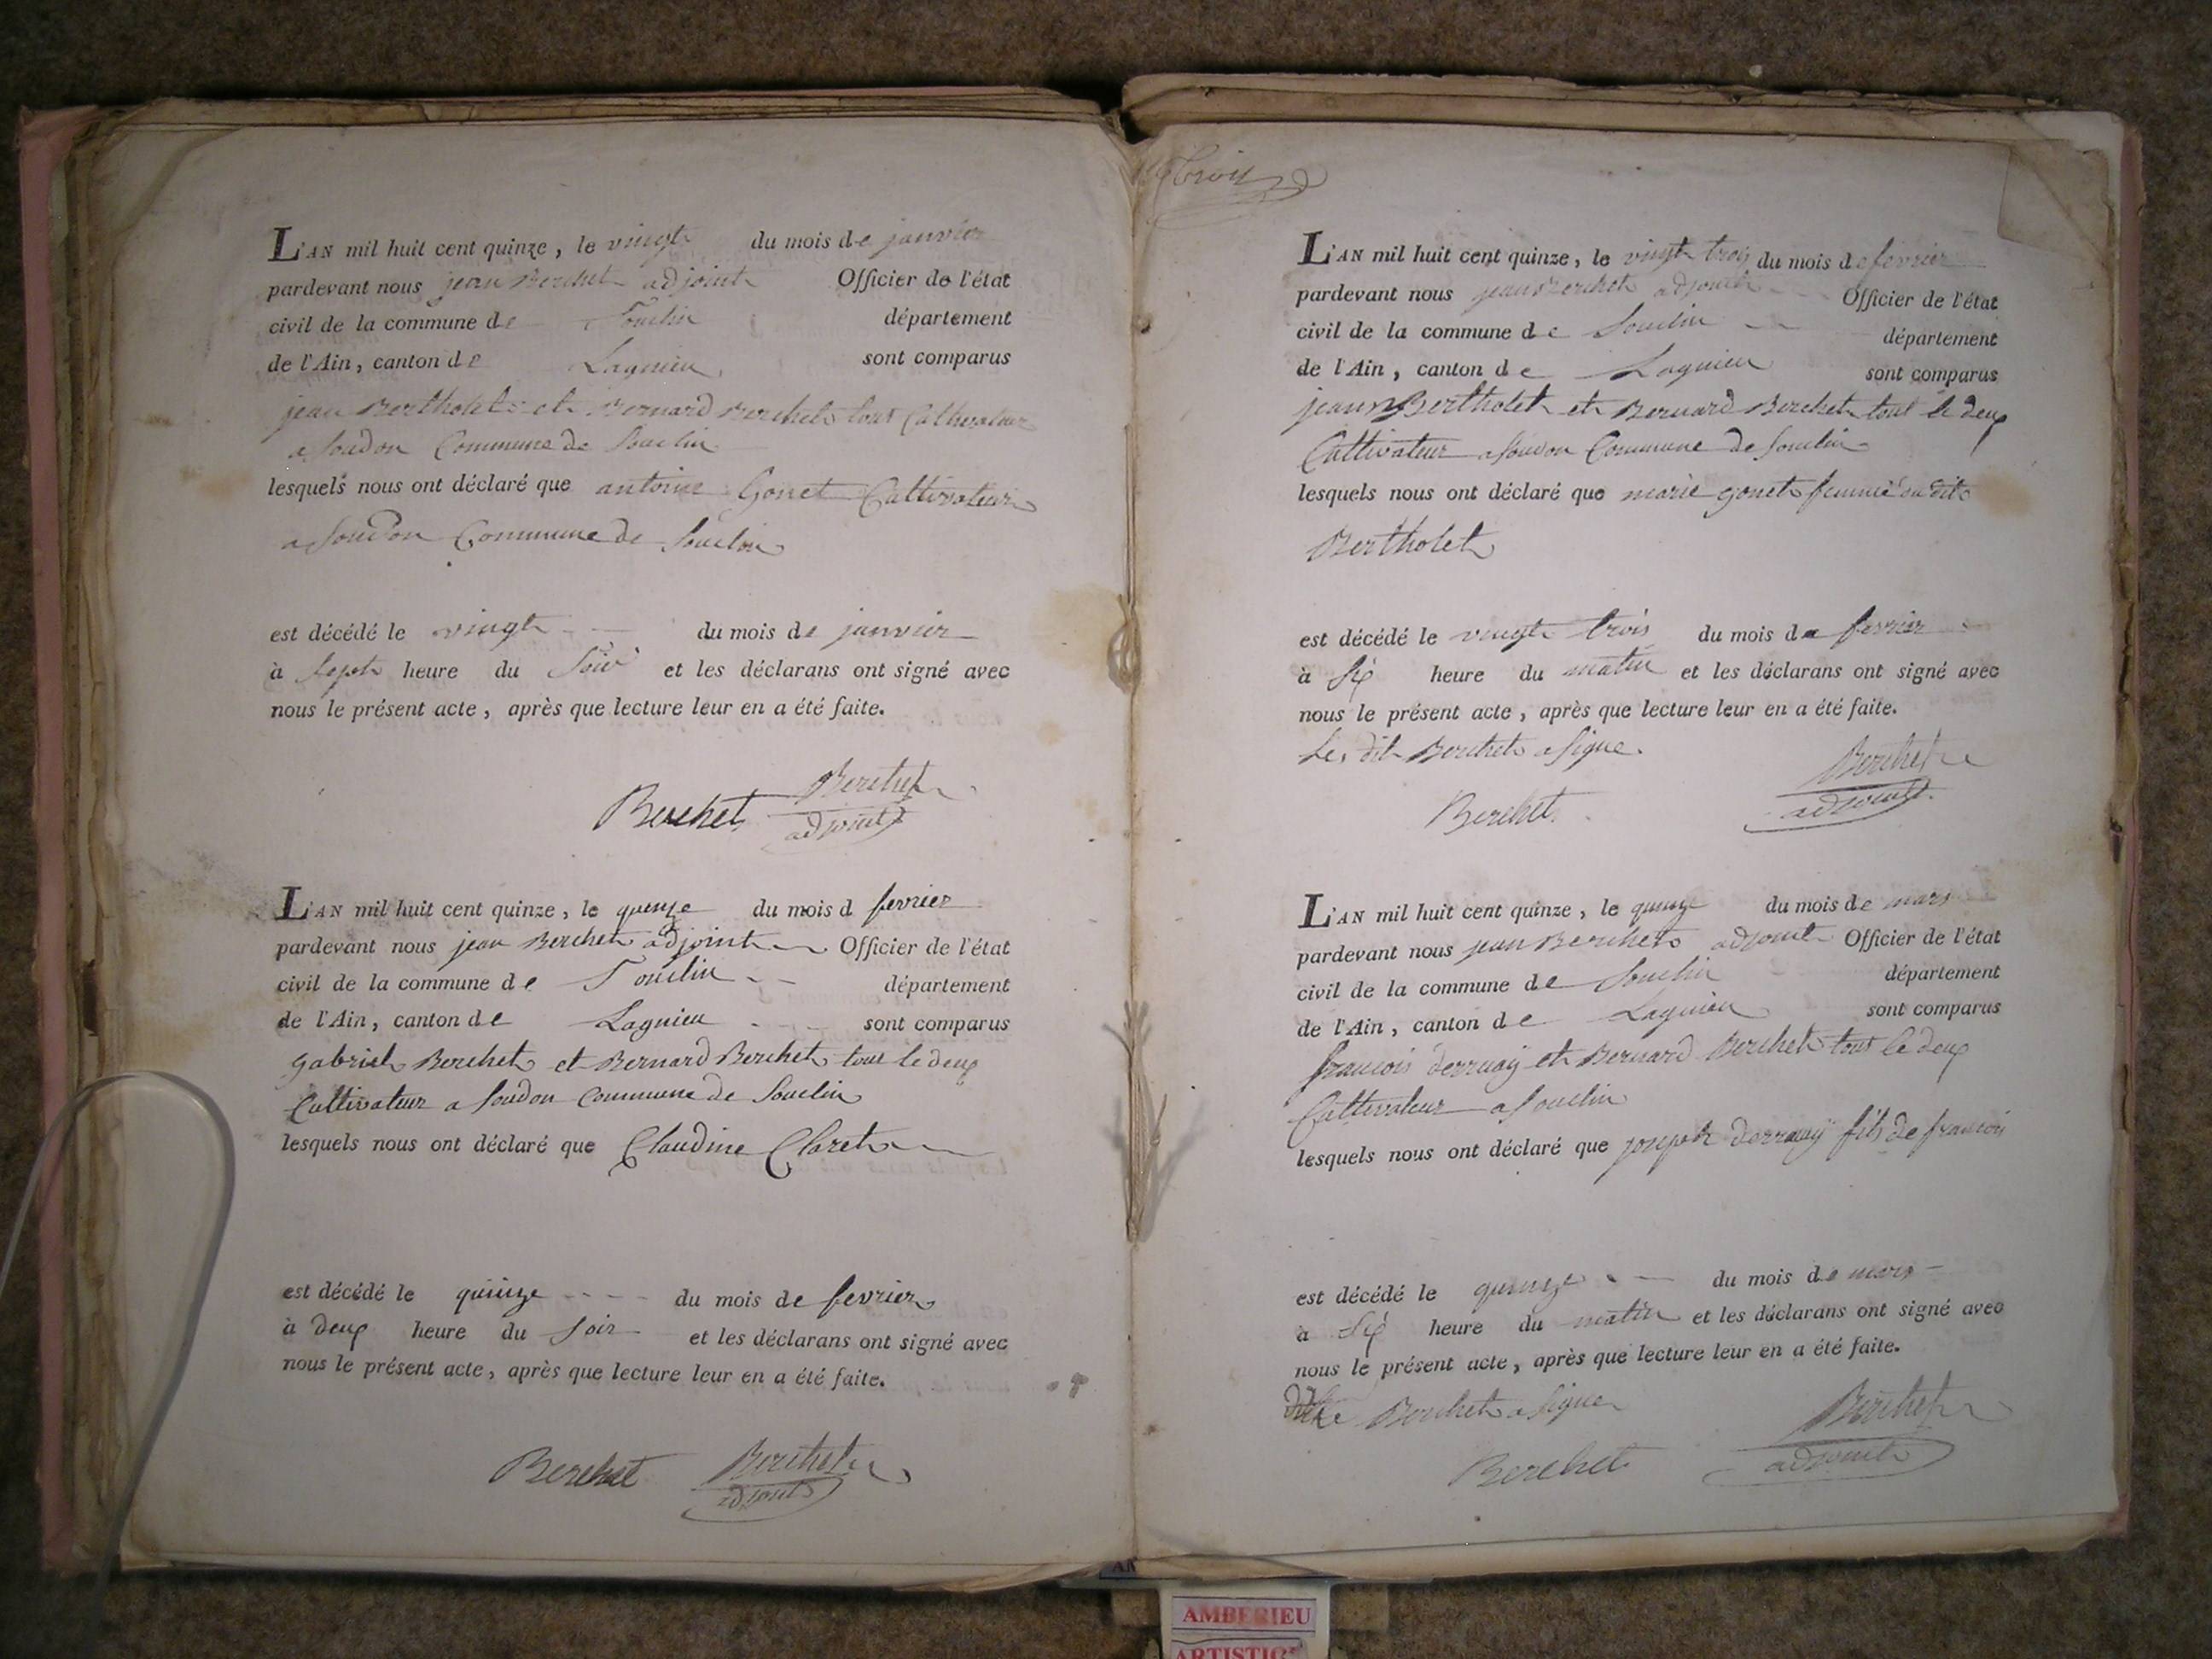 L'AN mil huit cent quinze, le vingt du mois de janvier
pardevant nous jean Berchet adjoint Officier de l'état
civil de la commune de Souclin département
de l'Ain, canton de Lagnieu sont comparus
jean Bertholet et Bernard Berchet tout Cultivateur
a Soudon Commune de Souclin
lesquels nous ont déclaré que antoine Gonet Cultivateur
a Soudon Commune de Souclin
est décédé le vingt du mois de janvier
à Sept heure du Soir et les déclarans ont signé avec
nous le présent acte, après que lecture leur en a été faite.
Berchet Berchet
adjoint
L'AN mil huit cent quinze, le quinze du mois d fevrier
pardevant nous jean Berchet adjoint Officier de l'état
civil de la commune de Souclin département
de l'Ain, canton de Lagnieu sont comparus
gabriel Berchet et Bernard Berchet tout le deux
Cultivateur a Soudon Commune de Souclin
lesquels nous ont déclaré que Claudine Claret
est décédé le quinze du mois de fevrier
à deux heure du Soir et les déclarans ont signé avec
nous le présent acte, après que lecture leur en a été faite.
Berchet Berchet
adjoint
trois
L'AN mil huit cent quinze, le vingt trois du mois de fevrier
pardevant nous jean Berchet adjoint Officier de l'état
civil de la commune de Souclin département
de l'Ain, canton de Lagnieu sont comparus
jean Bertholet et Bernard Berchet tout le deux
Cultivateur a Soudon Commune de Souclin
lesquels nous ont déclaré que marie gonet femme dudit
Bertholet
est décédé le vingt trois du mois de fevrier
à Six heure du matin et les déclarans ont signé avec
nous le présent acte, après que lecture leur en a été faite.
Le dit Berchet a signe.
Berchet Berchet
adjoint
L'AN mil huit cent quinze, le quinze du mois de mars
pardevant nous jean Berchet adjoint Officier de l'état
civil de la commune de Souclin département
de l'Ain, canton de Lagnieu sont comparus
francois derruay et Bernard Berchet tout le deux
Cultivateur a Souclin
lesquels nous ont déclaré que joseph derruay fils de francois
est décédé le quinze du mois de mars
à Six heure du matin et les déclarans ont signé avec
nous le présent acte, après que lecture leur en a été faite.
Le Berchet a signe
Berchet Berchet
adjoint
AMBERIEU